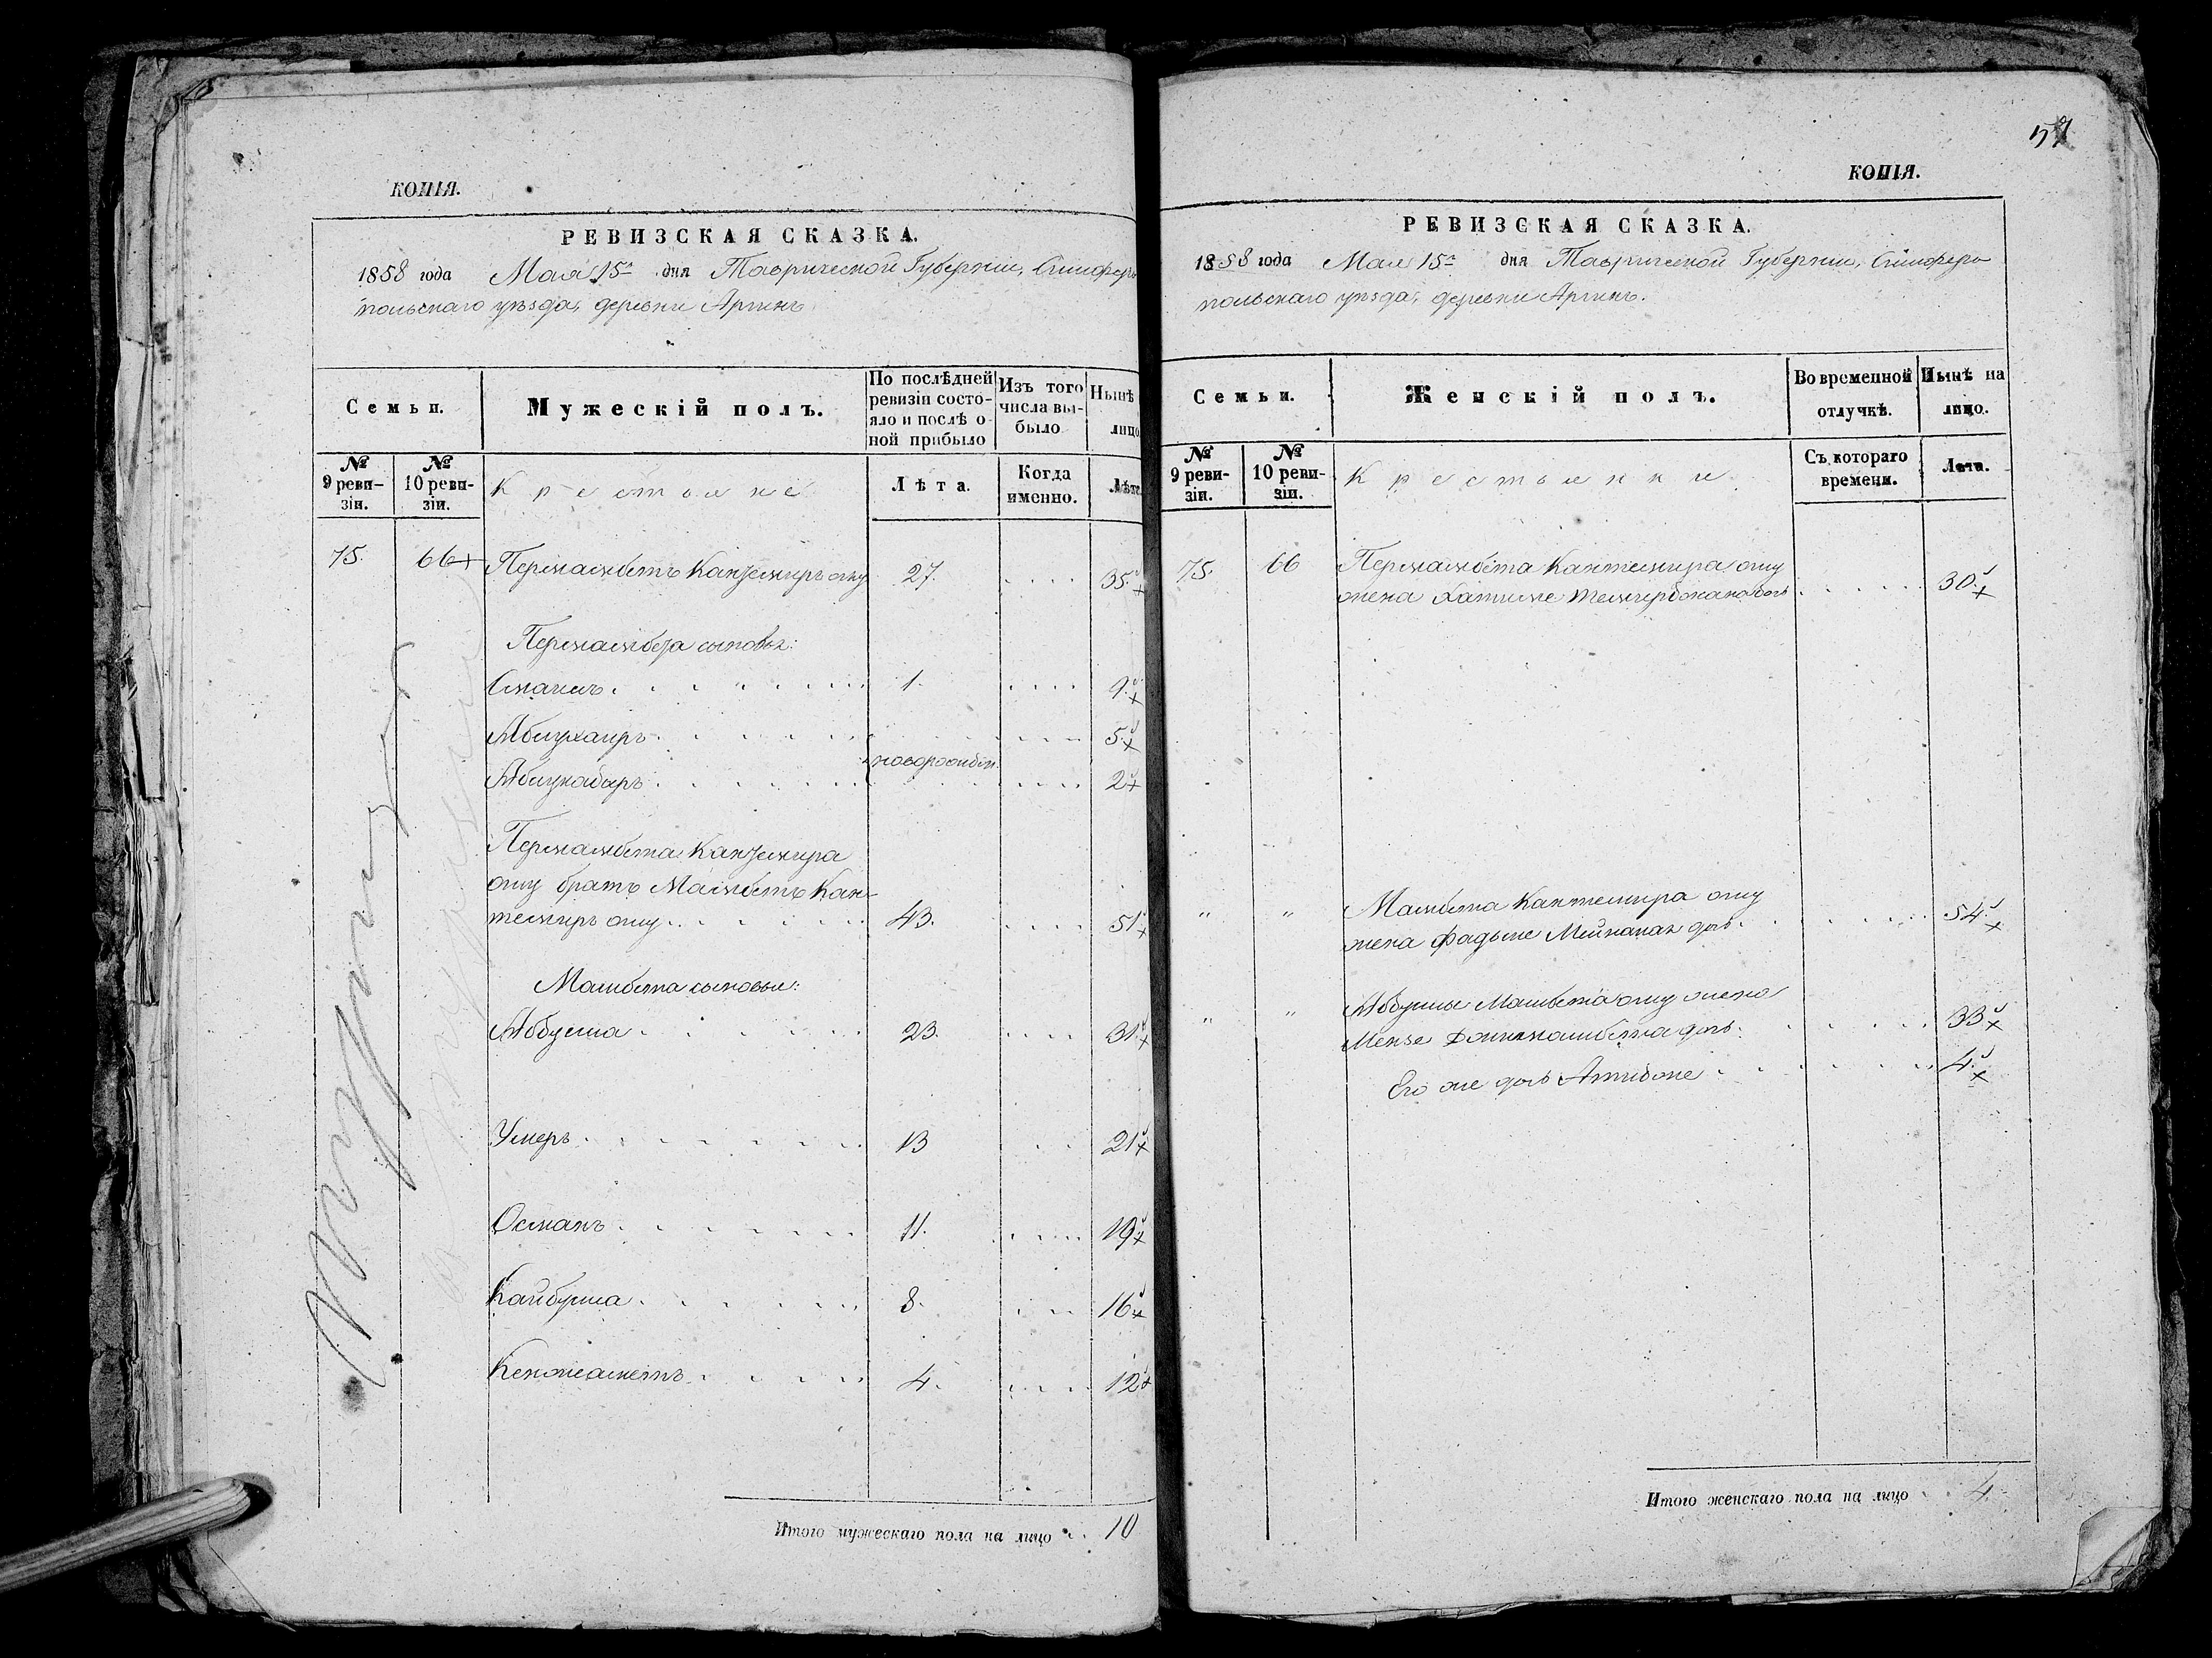 КОПІЯ.
РЕВИЗСКАЯ СКАЗКА.
1858 года Мая 15го дня Таврической Губерніи, Симферо
польскаго уѣзда, деревни Аргинъ
Семьи.
Мужескій полъ.
По послѣдней
ревизіи состо-
яло и послѣ о-
ной прибыло
Изъ того
числа вы-
было
Нынѣ
лицо
№
9 реви-
зіи.
№
10 реви-
зіи.
Крестьяне
Лѣта.
Когда
именно.
Лѣта
75. 66 Пермамбетъ Кантемиръ оглу 27. 35.
Пермамбета сыновья:
Смаилъ 1. 9.
Аблухаиръ 5.
новорожден.
2
Пермамбета Кантемира
оглу братъ Мамбетъ Кан-
темиръ оглу 43. 51
Мамбета сыновья:
23. 31.
Умеръ 13 21
Османъ 11. 19
Кайбулла 8. 16
Кенжеаметъ 4. 12
Итого мужескаго пола на лицо 10
57
КОПІЯ.
РЕВИЗСКАЯ СКАЗКА.
1858 года Мая 15го дня Таврической Губерніи, Симферо
польскаго уѣзда, деревни Аргинъ.
Семьи.
Женскій полъ.
Во временной
отлучкѣ.
Нынѣ на
лицо.
№
9 реви-
зіи.
№
10 реви-
зіи.
Крестьянки
Съ котораго
времени.
Лета.
75. 66 Пермамбета Кантемира оглу
жена Хатиме 30.
" " Мамбета Кантемира оглу
жена Фадьме дочь 54.
" " Мамбета оглу жена
дочь 33
Его же дочь 4.
Итого женскаго пола на лицо 4.